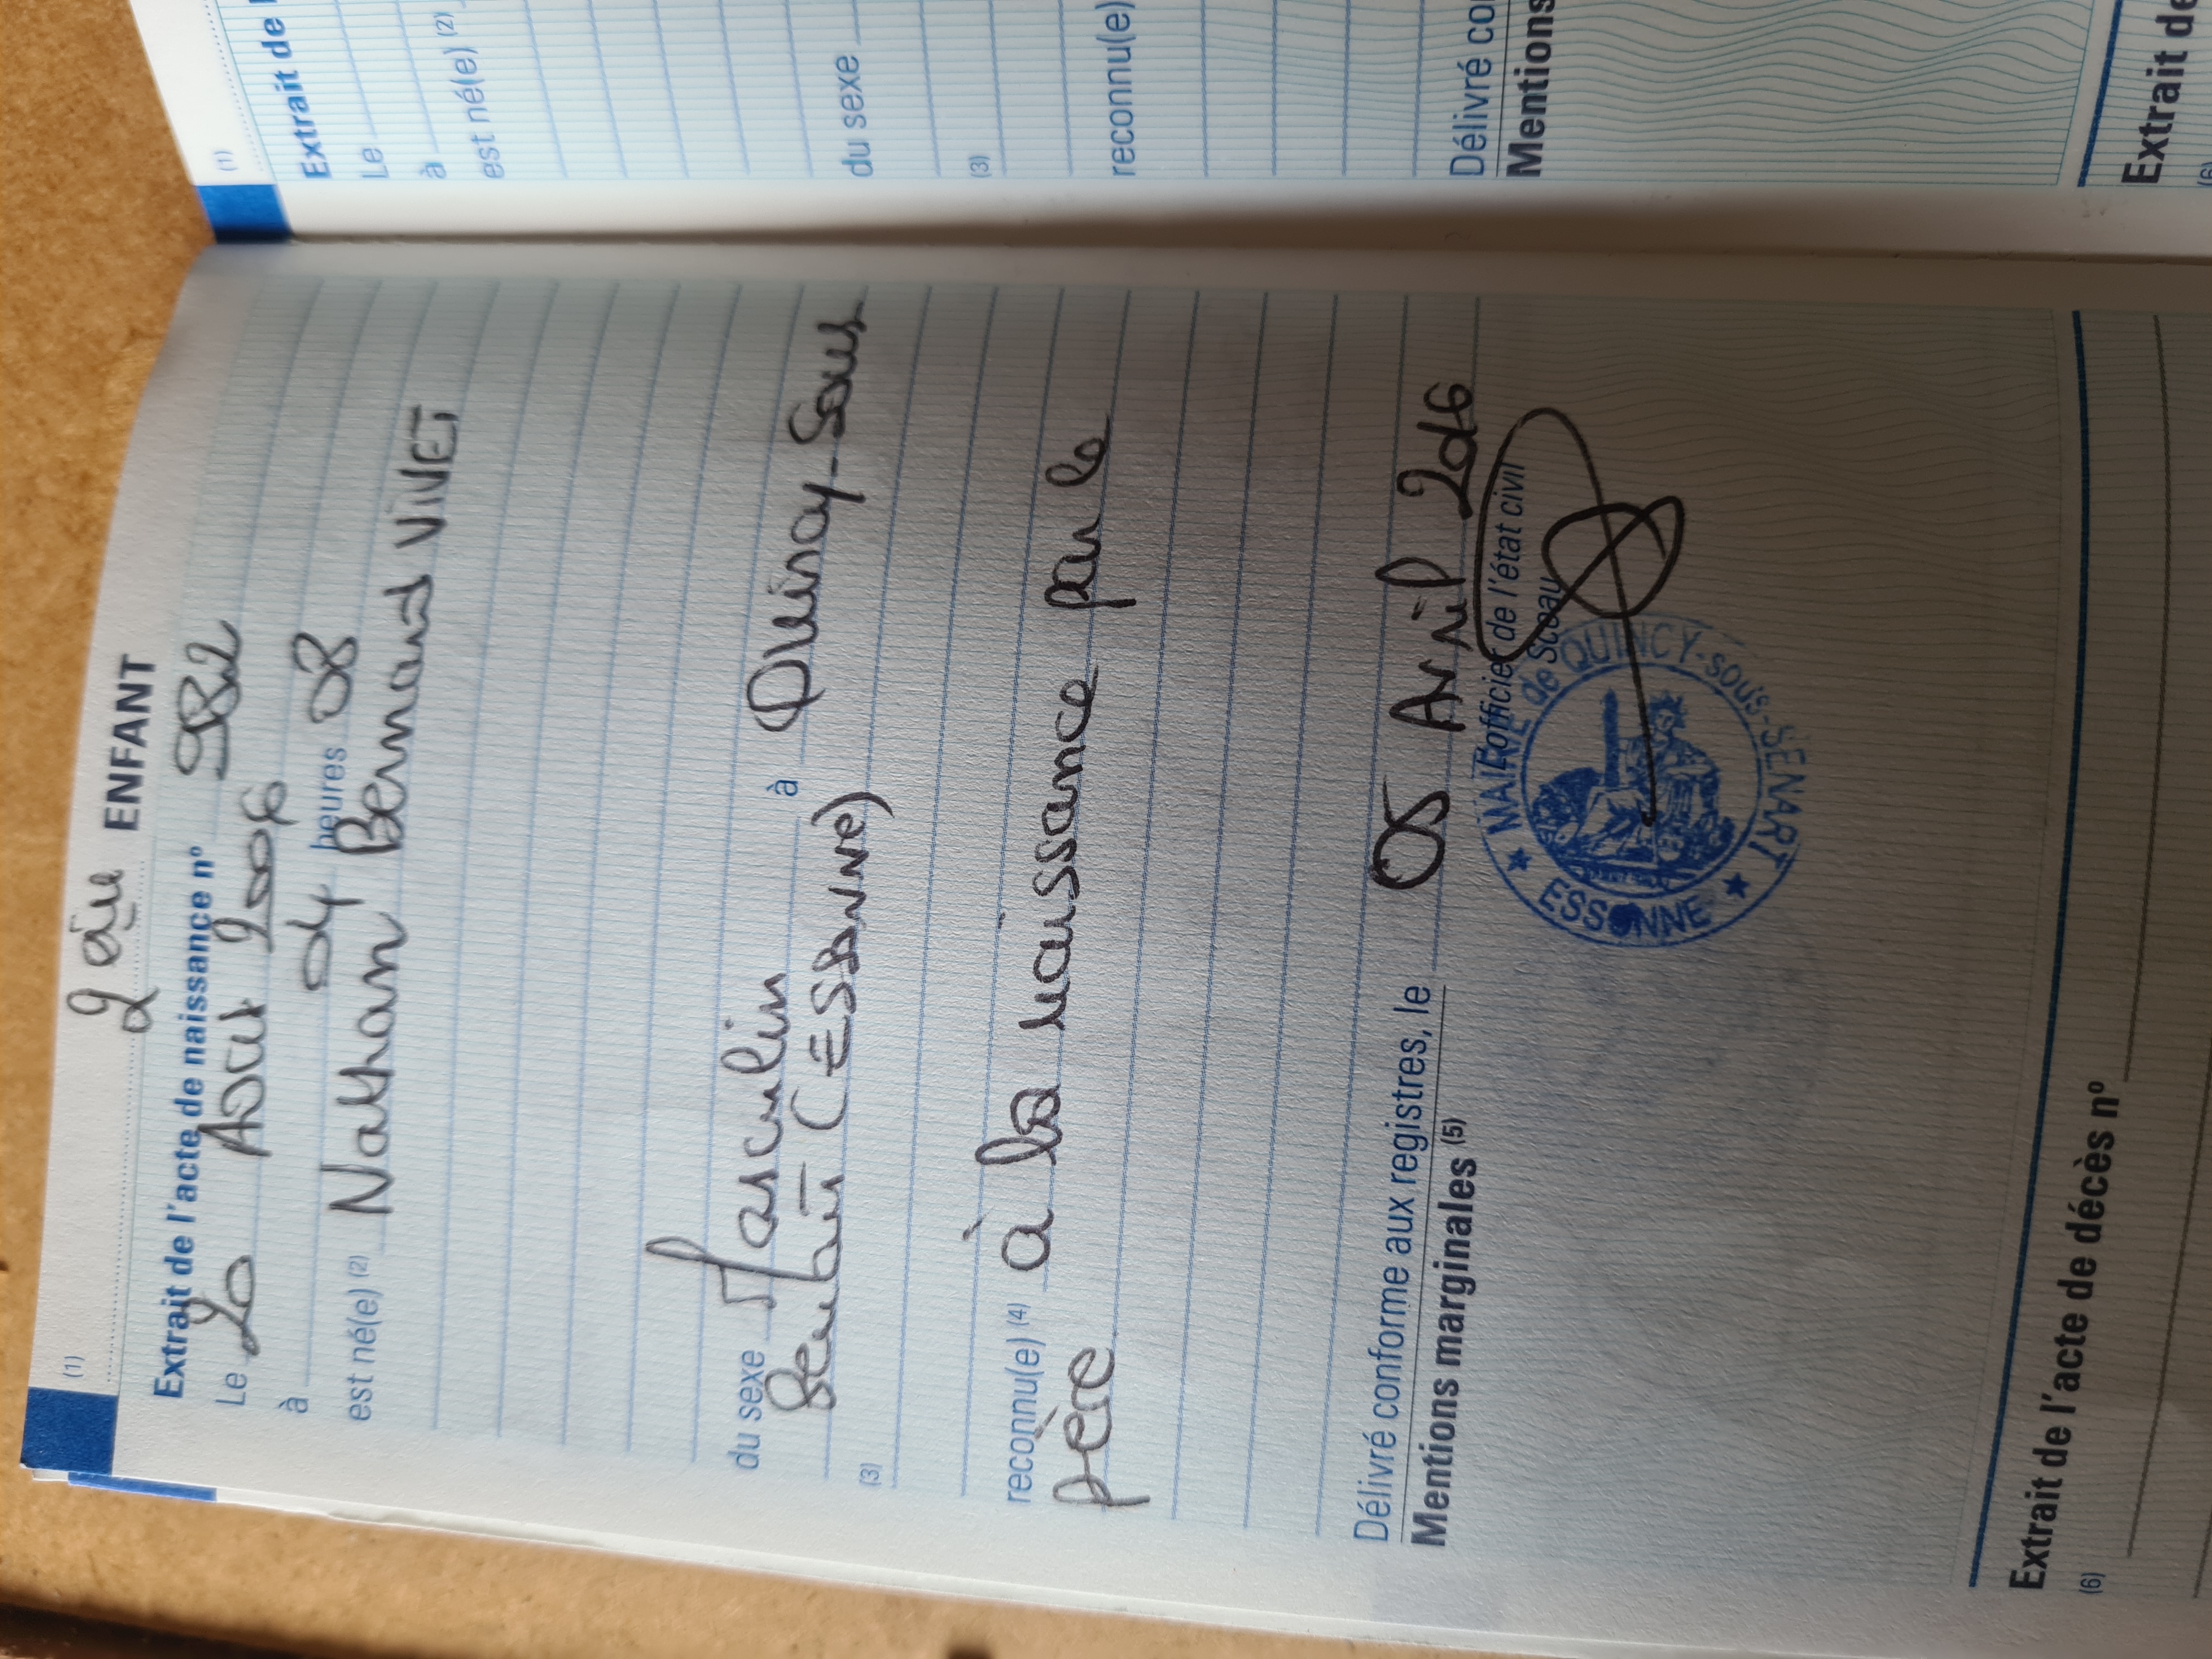 (1) 2 ème ENFANT
Extrait de l'acte de naissance nº 982
Le 20 Août 2006
à 01 heures 08
est né(e) (2) Nathan Bernard VINET
du sexe Masculin à Quincy-Sous
Sénart (Essonne)
(3)
reconnu(e) (4) à la naissance par le
père
Délivré conforme aux registres, le 05 Avril 2016
Mentions marginales (5)
L'officier de l'état civil
Sceau
MAIRIE de QUINCY-sous-SENART
★ ESSONNE ★
Extrait de l'acte de décès nº
(6)
(1)
Extrait de l
Le
à
est né(e) (2)
du sexe
(3)
reconnu(e)
Délivré co
Mentions
Extrait de
(6)